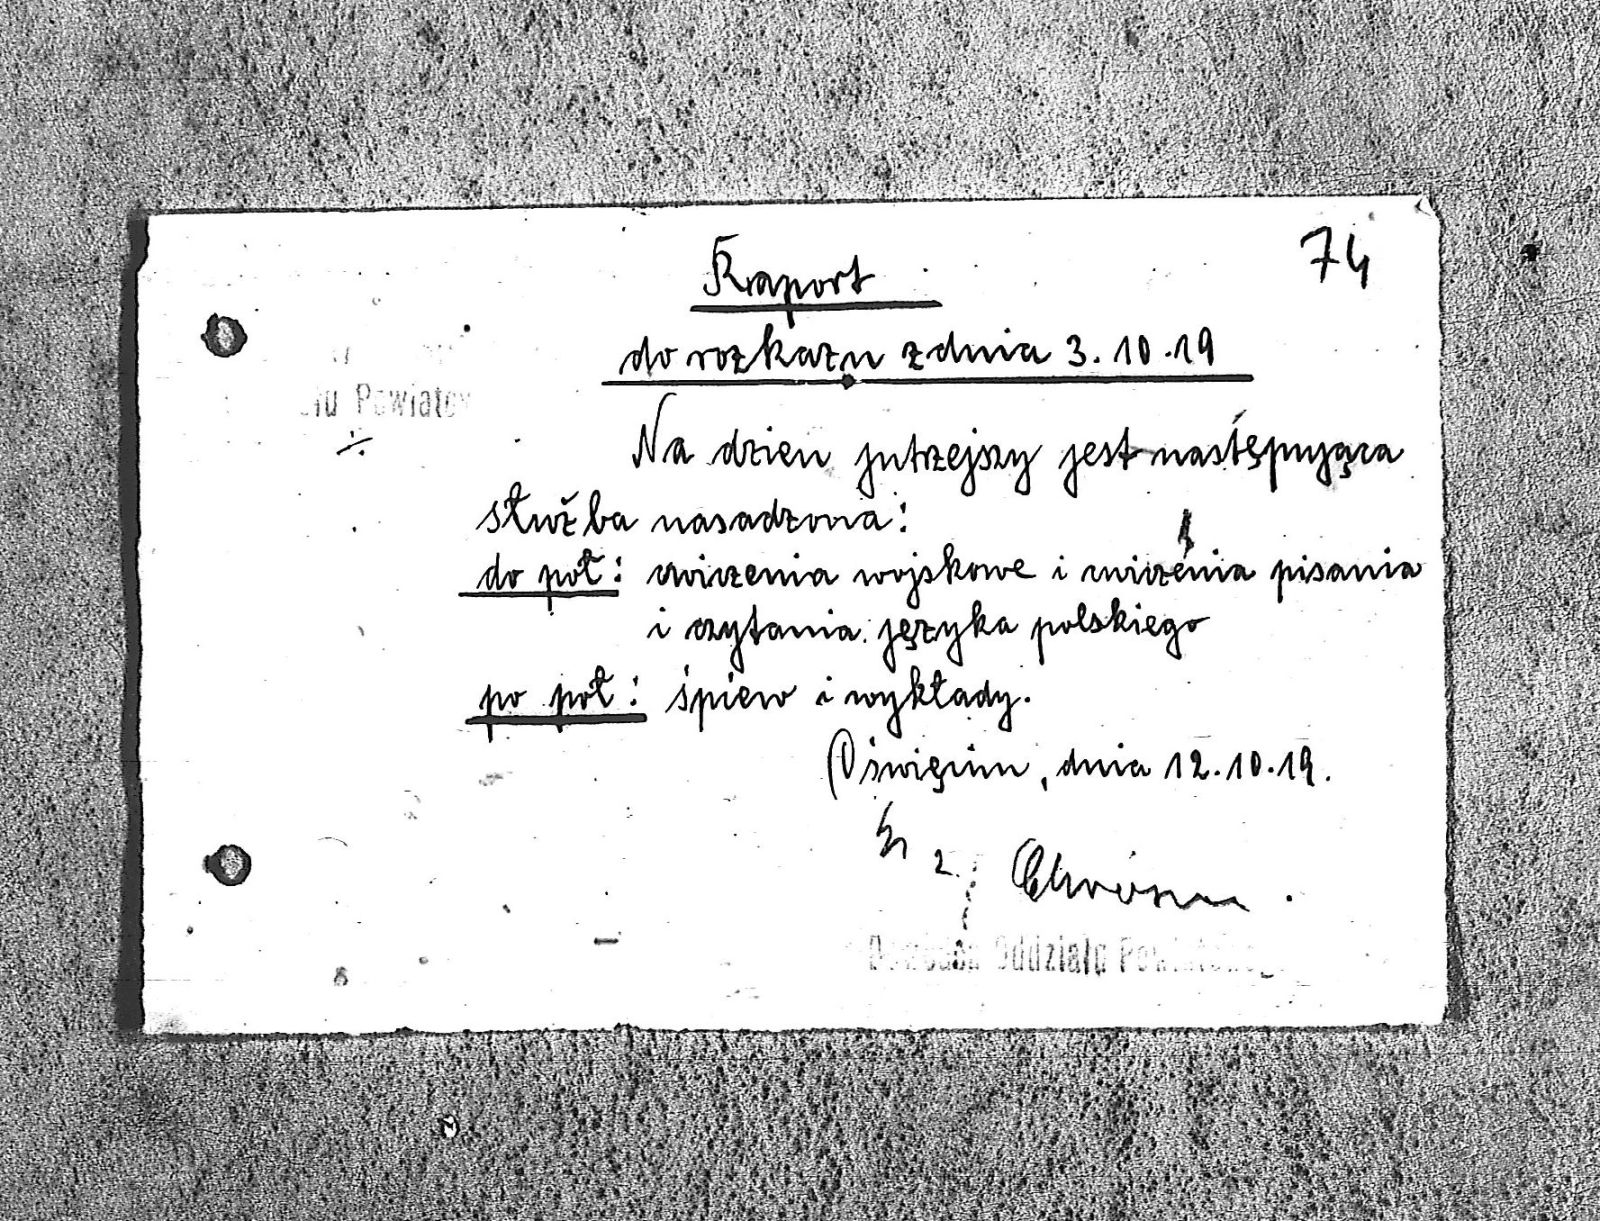 74
Raport
do rozkazu z dnia 3.10.19
Na dzien jutrzejszy jest następująca
służba nasadzona:
do poł: cwiczenia wojskowe i cwiczenia pisania
i czytania języka polskiego
po poł: śpiew i wykłady.
Oświęcim, dnia 12.10.19.
Oddziału